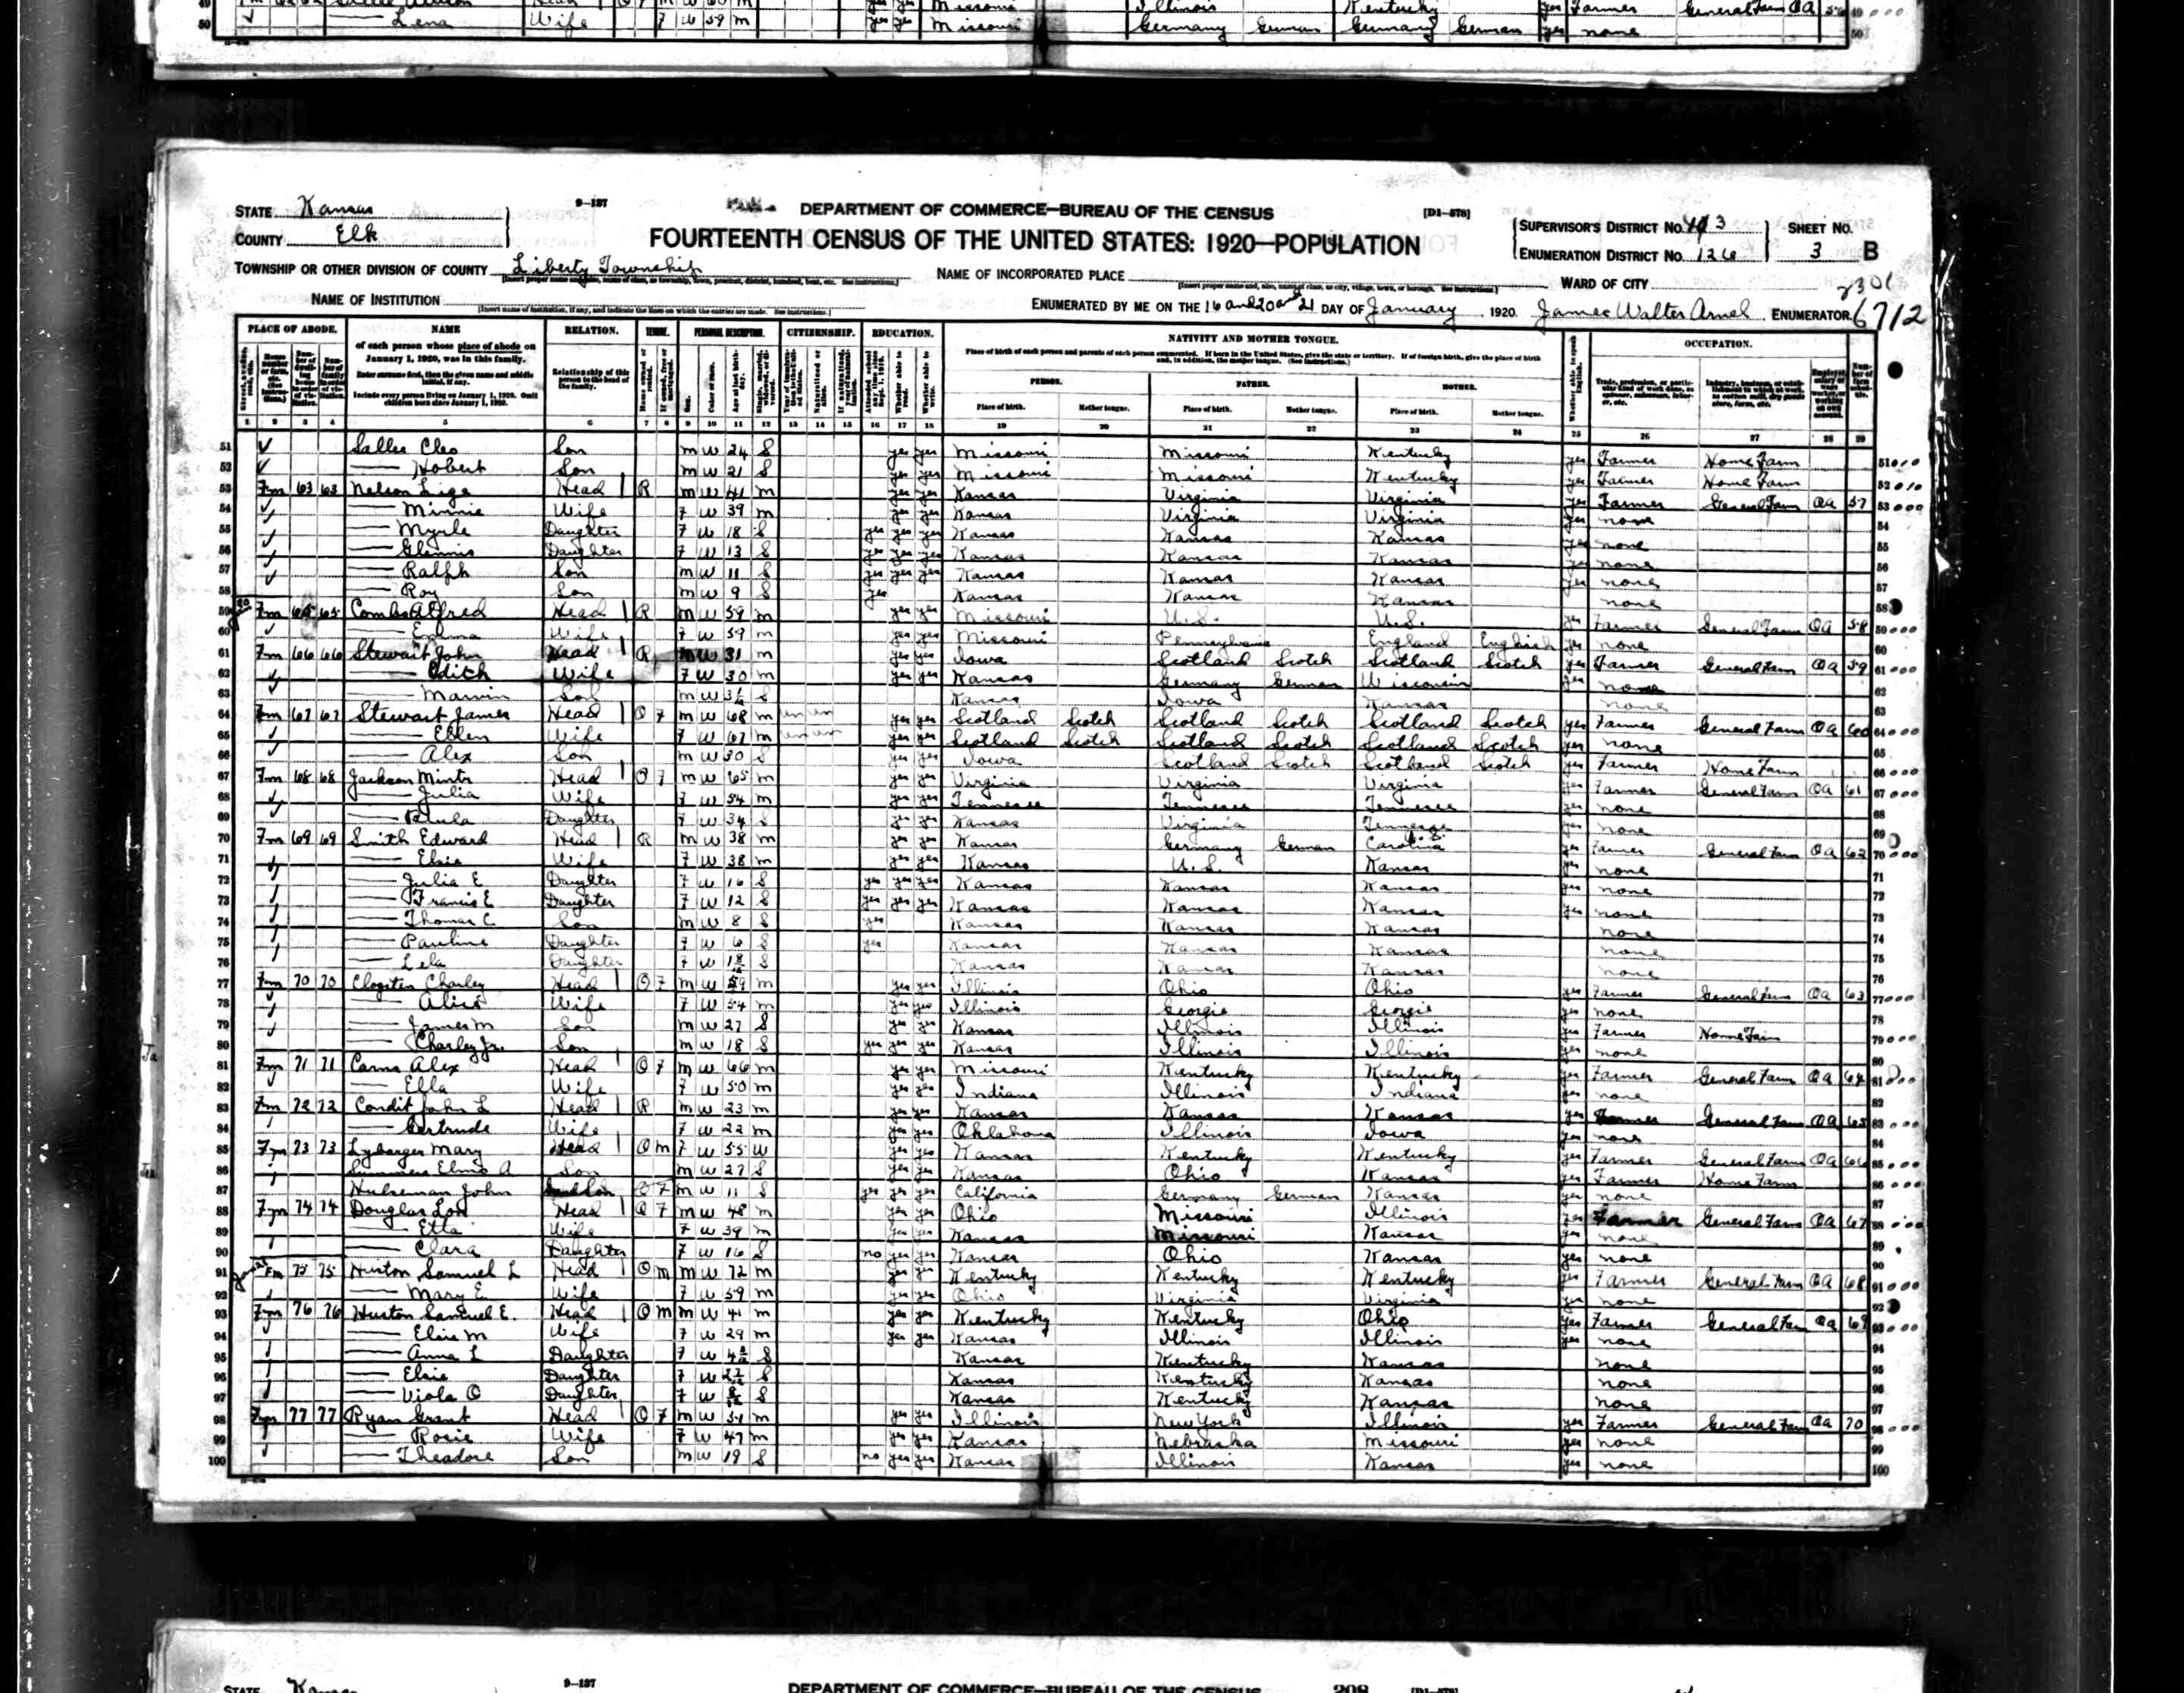 Lena Wife F W 59 m yes yes Missouri Germany German Germany German yes none
STATE Kansas
COUNTY Elk
9-137
DEPARTMENT OF COMMERCE—BUREAU OF THE CENSUS
[D1-578]
FOURTEENTH CENSUS OF THE UNITED STATES: 1920—POPULATION
SUPERVISOR'S DISTRICT No. 3 SHEET No.
ENUMERATION DISTRICT No. 126 3 B
TOWNSHIP OR OTHER DIVISION OF COUNTY Liberty Township
NAME OF INCORPORATED PLACE
WARD OF CITY
2301
NAME OF INSTITUTION
ENUMERATED BY ME ON THE 16 and 20 and 21 DAY OF January, 1920. James Walter Arnel, ENUMERATOR.
6712
PLACE OF ABODE. NAME RELATION. TENURE. PERSONAL DESCRIPTION. CITIZENSHIP. EDUCATION. NATIVITY AND MOTHER TONGUE. OCCUPATION.
of each person whose place of abode on January 1, 1920, was in this family.
Enter surname first, then the given name and middle initial, if any.
Include every person living on January 1, 1920. Omit children born since January 1, 1920.
Relationship of this person to the head of the family.
Place of birth of each person and parents of each person enumerated. If born in the United States, give the state or territory. If of foreign birth, give the place of birth and, in addition, the mother tongue. (See instructions.)
PERSON. FATHER. MOTHER.
Place of birth. Mother tongue. Place of birth. Mother tongue. Place of birth. Mother tongue.
1 2 3 4 5 6 7 8 9 10 11 12 13 14 15 16 17 18 19 20 21 22 23 24 25 26 27 28 29
51 Salles Cleo Son m W 24 S yes yes Missouri Missouri Kentucky yes Farmer Home Farm
52 Hobert Son m W 21 S yes yes Missouri Missouri Kentucky yes Farmer Home Farm
53 Fm 63 63 Nelson Lige Head R m W 41 m yes yes Kansas Virginia Virginia yes Farmer General Farm OA 57
54 Minnie Wife F W 39 m yes yes Kansas Virginia Virginia yes none
55 Myrle Daughter F W 18 S yes yes yes Kansas Kansas Kansas yes none
56 Glennis Daughter F W 13 S yes yes yes Kansas Kansas Kansas yes none
57 Ralph Son m W 11 S yes yes yes Kansas Kansas Kansas yes none
58 Roy Son m W 9 S yes Kansas Kansas Kansas none
59 Fm 65 65 Combs Alfred Head R m W 59 m yes yes Missouri U.S. U.S. yes Farmer General Farm OA 58
60 Emma Wife F W 59 m yes yes Missouri Pennsylvania England English yes none
61 Fm 66 66 Stewart John Head R m W 31 m yes yes Iowa Scotland Scotch Scotland Scotch yes Farmer General Farm OA 59
62 Edith Wife F W 30 m yes yes Kansas Germany German Wisconsin yes none
63 Marvin Son m W S Kansas Iowa Kansas none
64 Fm 67 67 Stewart James Head O F m W 68 m un un yes yes Scotland Scotch Scotland Scotch Scotland Scotch yes Farmer General Farm OA 60
65 Ellen Wife F W 67 m un un yes yes Scotland Scotch Scotland Scotch Scotland Scotch yes none
66 Alex Son m W 30 S yes yes Iowa Scotland Scotch Scotland Scotch yes Farmer Home Farm
67 Fm 68 68 Jackson Minter Head O F m W 65 m yes yes Virginia Virginia Virginia yes Farmer General Farm OA 61
68 Julia Wife F W 54 m yes yes Tennessee Tennessee Tennessee yes none
69 Daughter F W 34 S yes yes Kansas Virginia Tennessee yes none
70 Fm 69 69 Smith Edward Head R m W 38 m yes yes Kansas Germany German Carolina yes Farmer General Farm OA 62
71 Elsie Wife F W 38 m yes yes Kansas U.S. Kansas yes none
72 Julia E Daughter F W 16 S yes yes yes Kansas Kansas Kansas yes none
73 Francis E Daughter F W 12 S yes yes yes Kansas Kansas Kansas yes none
74 Thomas C Son m W 8 S yes Kansas Kansas Kansas none
75 Pauline Daughter F W 6 S yes Kansas Kansas Kansas none
76 Lela Daughter F W S Kansas Kansas Kansas none
77 Fm 70 70 Clogston Charley Head O F m W 59 m yes yes Illinois Ohio Ohio yes Farmer General Farm OA 63
78 Alice Wife F W 54 m yes yes Illinois Georgia Georgia yes none
79 James M Son m W 27 S yes yes Kansas Illinois Illinois yes Farmer Home Farm
80 Charley Jr. Son m W 18 S yes yes yes Kansas Illinois Illinois yes none
81 Fm 71 71 Carns Alex Head O F m W 66 m yes yes Missouri Kentucky Kentucky yes Farmer General Farm OA 64
82 Ella Wife F W 50 m yes yes Indiana Illinois Indiana yes none
83 Fm 72 72 Condit John L Head R m W 23 m yes yes Kansas Kansas Kansas yes Farmer General Farm OA 65
84 Gertrude Wife F W 22 m yes yes Oklahoma Illinois Iowa yes none
85 Fm 73 73 Lybarger Mary Head O m F W 55 W yes yes Kansas Kentucky Kentucky yes Farmer General Farm OA 66
86 Summers Elmo A Son m W 27 S yes yes Kansas Ohio Kansas yes Farmer Home Farm
87 Hulseman John m W 11 S yes yes yes California Germany German Kansas yes none
88 Fm 74 74 Douglas Lon Head O F m W 48 m yes yes Ohio Missouri Illinois yes Farmer General Farm OA 67
89 Etta Wife F W 39 m yes yes Kansas Missouri Kansas yes none
90 Clara Daughter F W 16 S no yes yes Kansas Ohio Kansas yes none
91 Fm 75 75 Huston Samuel L Head O m m W 72 m yes yes Kentucky Kentucky Kentucky yes Farmer General Farm OA 68
92 Mary E Wife F W 59 m yes yes Ohio Virginia Virginia yes none
93 Fm 76 76 Huston Samuel E. Head O m m W 41 m yes yes Kentucky Kentucky Ohio yes Farmer General Farm OA 69
94 Elsie M Wife F W 29 m yes yes Kansas Illinois Illinois yes none
95 Anna L Daughter F W S Kansas Kentucky Kansas none
96 Elsie Daughter F W S Kansas Kentucky Kansas none
97 Viola O Daughter F W S Kansas Kentucky Kansas none
98 Fm 77 77 Ryan Grant Head O F m W 51 m yes yes Illinois New York Illinois yes Farmer General Farm OA 70
99 Rosie Wife F W 47 m yes yes Kansas Nebraska Missouri yes none
100 Theadore Son m W 19 S no yes yes Kansas Illinois Kansas yes none
STATE Kansas
9-137
DEPARTMENT OF COMMERCE—BUREAU OF THE CENSUS
208
[D1-578]